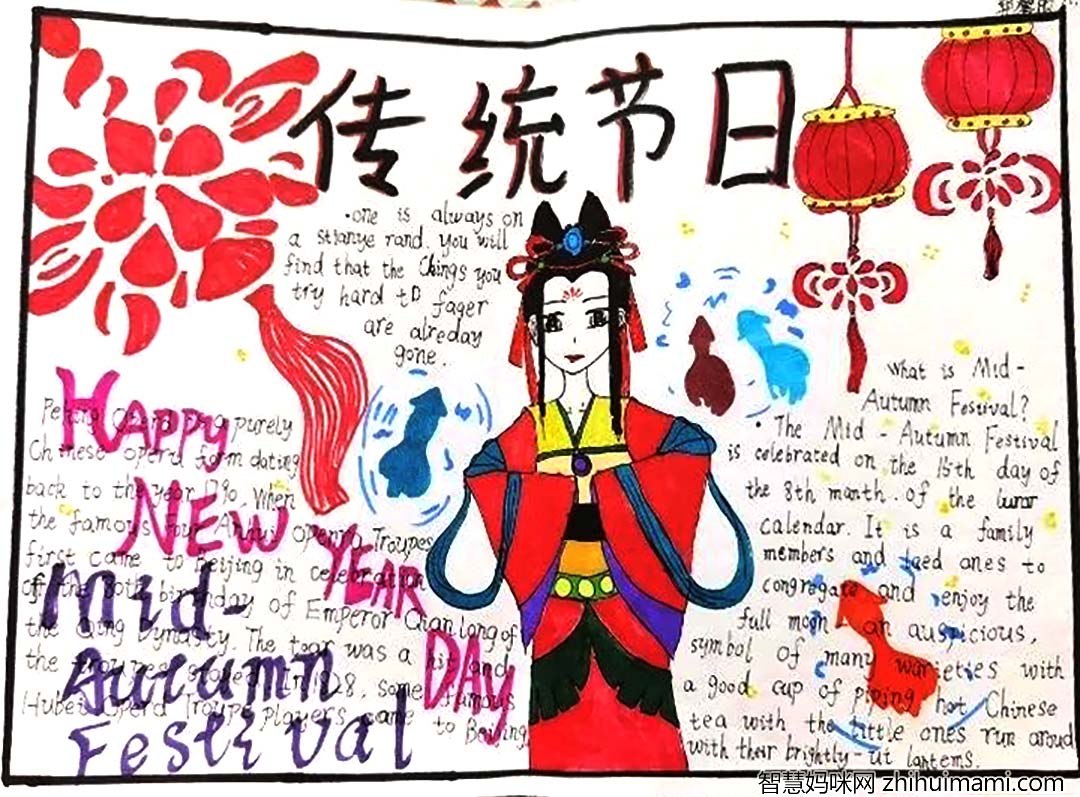 传统节日
·one is always on
a stranye rand. you will
find that the things you
try hard to fager
are alreday
gone.
HAPPY
NEW
YEAR
DAY
Mid-
Autumn
Festival
Peking Opera is a purely
Chinese opera form dating
back to the year 1790, When
the famous four Anhui opera Troupes
first came to Beijing in celebration
of the 80th birthday of Emperor Qianlong of
the Qing Dynasty. The tour was a hit and
the troupes stayed. In 1828, some famous
Hubei Opera Troupe players came to Beijing
What is Mid-
Autumn Festival?
· The Mid-Autumn Festival
is celebrated on the 15th day of
the 8th month of the lunar
calendar. It is a family
members and loed ones to
congregate and enjoy the
full moon an auspicious,
symbol of many warieties with
a good cup of piping hot Chinese
tea with the little ones run aroud
with their brightly-lit lantems.
智慧妈咪网 zhihuimami.com